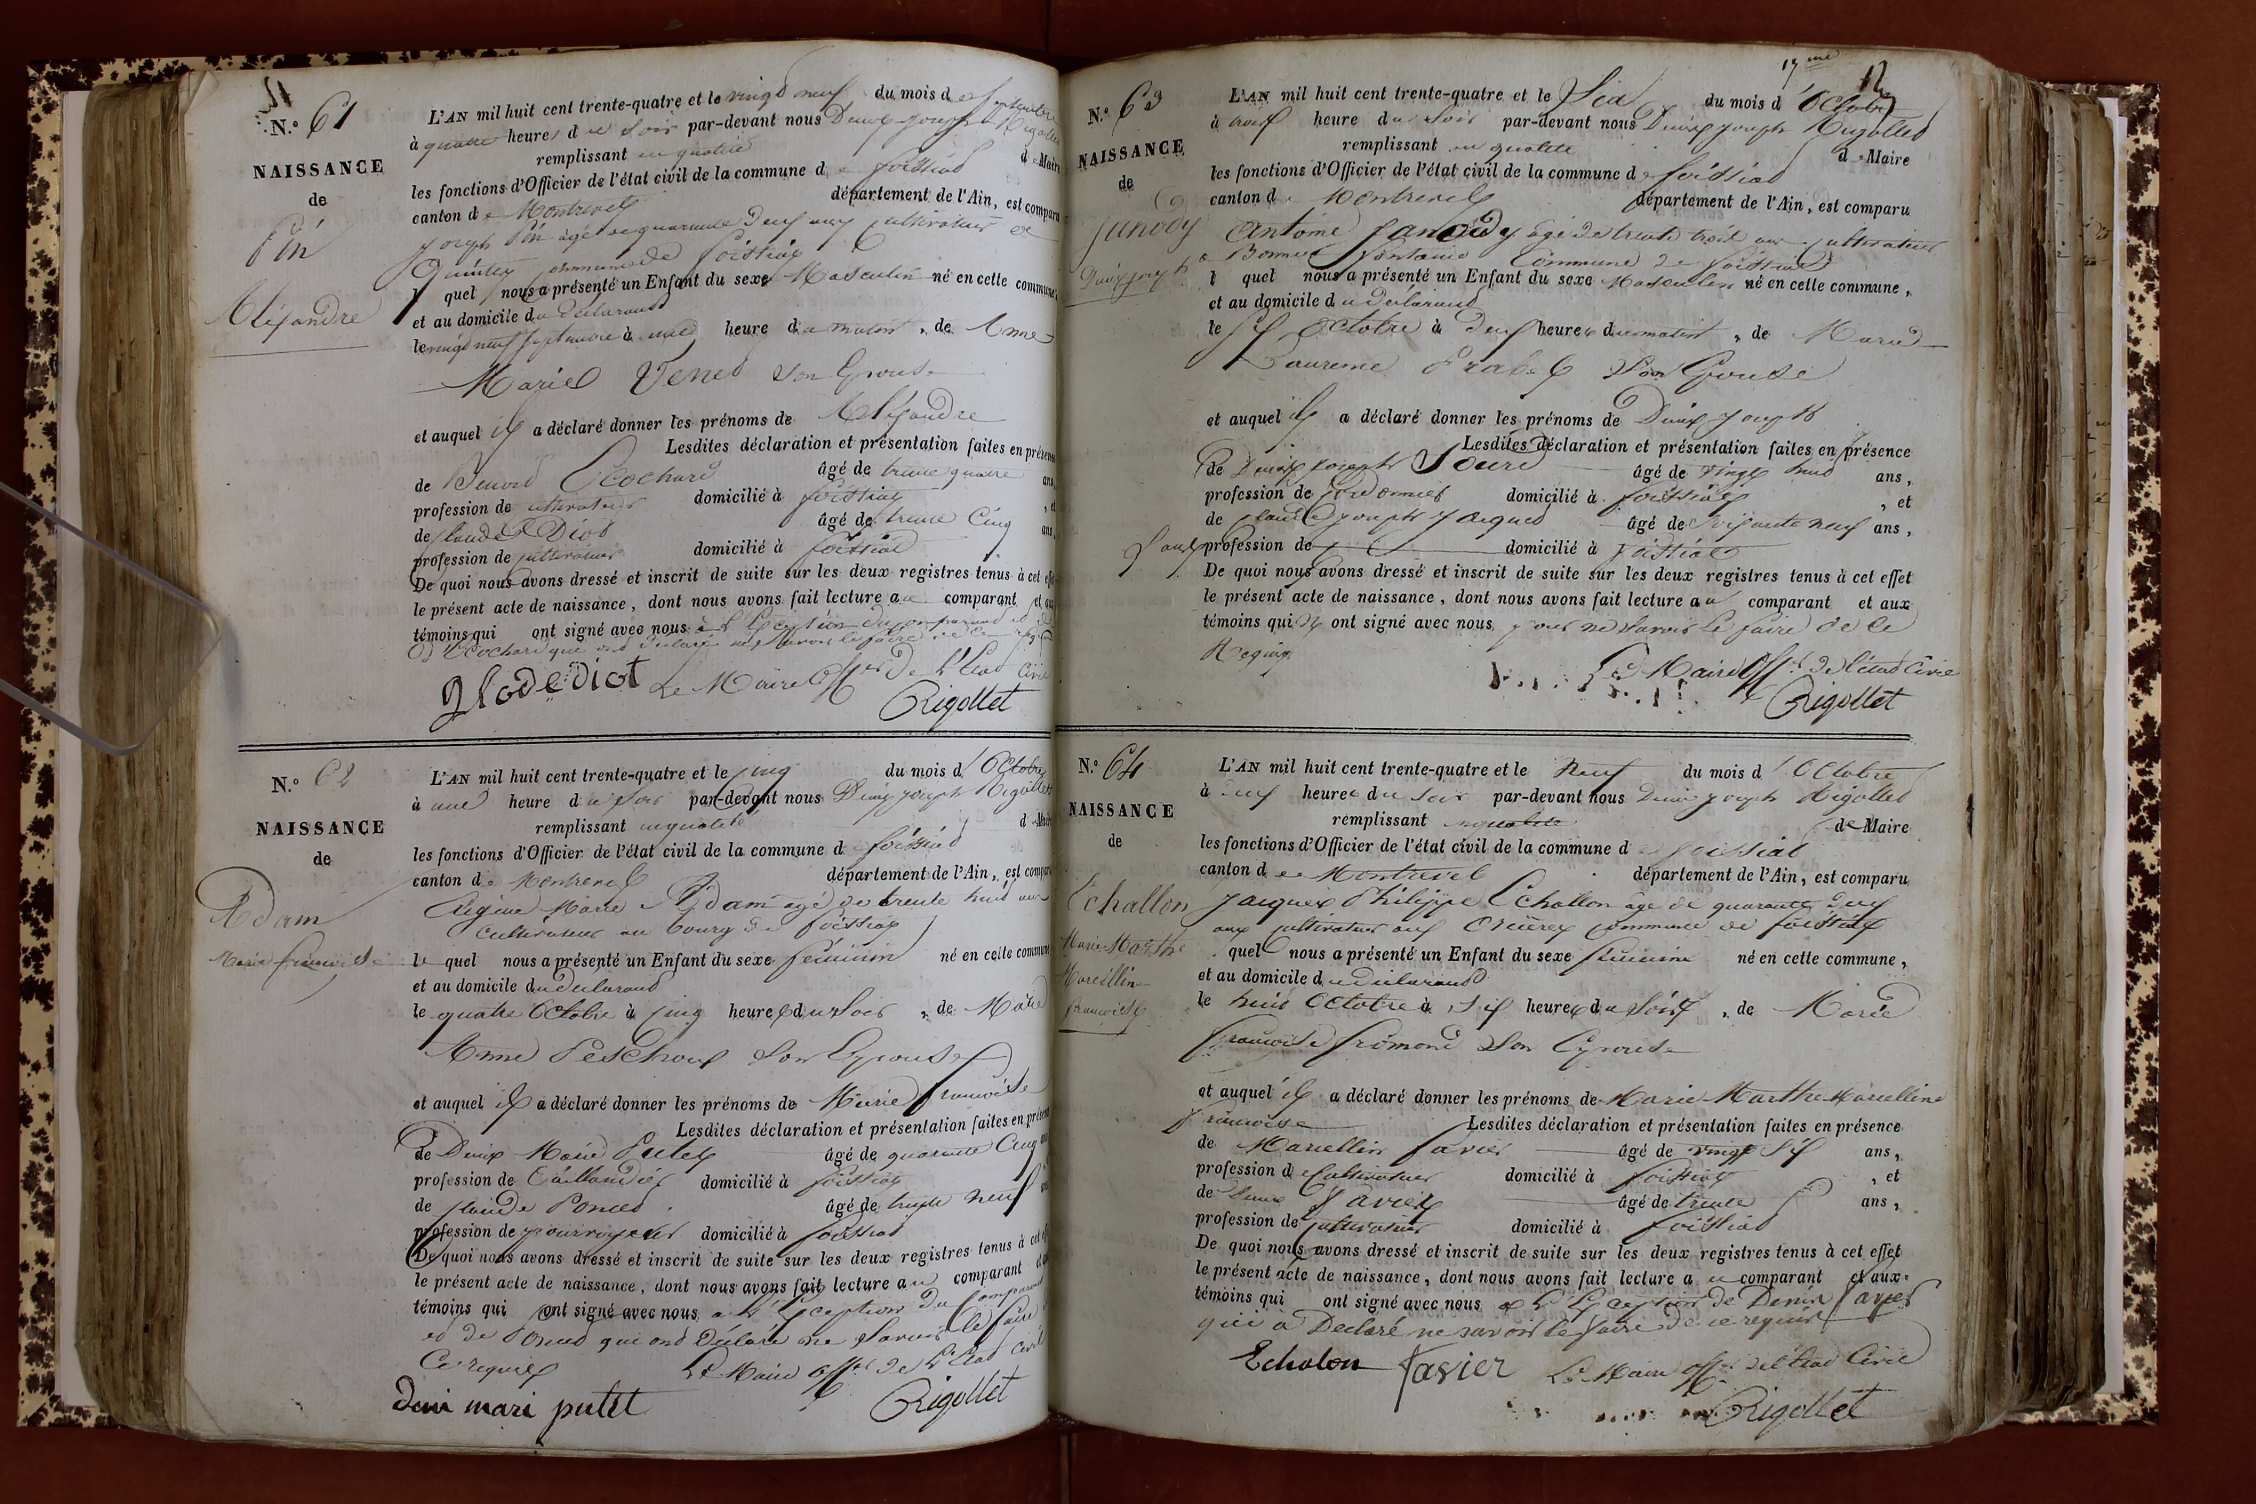 N.° 61
NAISSANCE
de
Pin
Alexandre
L'AN mil huit cent trente-quatre et le vingt neuf du mois de Septembre
à quatre heures du soir par-devant nous Denis joseph Rigollet
remplissant en qualité de Maire
les fonctions d'Officier de l'état civil de la commune de foissiat
canton de Montrevel département de l'Ain, est comparu
joseph Pin âgé de quarante deux ans cultivateur
commune de foissiat
quel nous a présenté un Enfant du sexe Masculin né en cette commune,
et au domicile du déclarant
le vingt neuf septembre à une heure du matin, de Anne
Marie Venet Son Epouse
et auquel il a déclaré donner les prénoms de Alexandre
Lesdites déclaration et présentation faites en présence
de Benoit Cochard âgé de trente quatre ans
profession de cultivateur domicilié à foissiat, et
de Claude Diot âgé de trente cinq ans,
profession de cultivateur domicilié à foissiat
De quoi nous avons dressé et inscrit de suite sur les deux registres tenus à cet effet
le présent acte de naissance, dont nous avons fait lecture au comparant et aux
témoins qui ont signé avec nous à l'Exception du comparant et
Cochard qui ont déclaré ne savoir le faire de ce requis
Glodediot Le Maire Offer de l'Etat Civil
Rigollet
N.° 62
NAISSANCE
de
Adam
Marie françoise
L'AN mil huit cent trente-quatre et le cinq du mois d'Octobre
à une heure du soir par-devant nous Denis joseph Rigollet
remplissant en qualité de Maire
les fonctions d'Officier de l'état civil de la commune de foissiat
canton de Montrevel département de l'Ain, est comparu
Marie Adam âgé de trente huit ans
cultivateur au bourg de foissiat
le quel nous a présenté un Enfant du sexe féminin né en cette commune
et au domicile du déclarant
le quatre Octobre à cinq heures du soir, de Marie
Anne Peschoux Son Epouse
et auquel il a déclaré donner les prénoms de Marie françoise
Lesdites déclaration et présentation faites en présence
de Denis Marie Putet âgé de quarante cinq ans
profession de Taillandier domicilié à foissiat
de Claude Poncet âgé de trente neuf ans
profession de domicilié à foissiat
De quoi nous avons dressé et inscrit de suite sur les deux registres tenus à cet effet
le présent acte de naissance, dont nous avons fait lecture au comparant et aux
témoins qui ont signé avec nous à l'Exception du comparant
et de Poncet qui ont Déclaré ne savoir le faire
Ce requis Le Maire offer de l'Etat Civil
Deni mari putet Rigollet
17me 12
N.° 63
NAISSANCE
de
Janody
Denis joseph
L'AN mil huit cent trente-quatre et le Six du mois d'Octobre
à heure du soir par-devant nous Denis joseph Rigollet
remplissant en qualité de Maire
les fonctions d'Officier de l'état civil de la commune de foissiat
canton de Montrevel département de l'Ain, est comparu
Antoine Janody âgé de trente trois ans cultivateur
à Bonne fontaine Commune de foissiat
l quel nous a présenté un Enfant du sexe Masculin né en cette commune,
et au domicile du déclarant
le six Octobre à deux heures du matin, de Marie
Laurence Son Epouse
et auquel il a déclaré donner les prénoms de Denis joseph
Lesdites déclaration et présentation faites en présence
de Denis joseph âgé de vingt huit ans,
profession de Cordonnier domicilié à foissiat, et
de Claude joseph Jacques âgé de soixante neuf ans,
profession de domicilié à foissiat
De quoi nous avons dressé et inscrit de suite sur les deux registres tenus à cet effet
le présent acte de naissance, dont nous avons fait lecture au comparant et aux
témoins qui ont signé avec nous pour ne savoir le faire de ce
Requis
Le Maire Offer de l'état Civil
Rigollet
N.° 64
NAISSANCE
de
Echallon
Marie Marthe
Marcelline
françoise
L'AN mil huit cent trente-quatre et le Neuf du mois d'Octobre
à heures du soir par-devant nous Denis joseph Rigollet
remplissant en qualité de Maire
les fonctions d'Officier de l'état civil de la commune de foissiat
canton de Montrevel département de l'Ain, est comparu
jacques Philippe Echallon âgé de quarante deux
ans cultivateur aux commune de foissiat
quel nous a présenté un Enfant du sexe féminin né en cette commune,
et au domicile du déclarant
le huit Octobre à six heures du soir, de Marie
françoise fromont Son Epouse
et auquel il a déclaré donner les prénoms de Marie Marthe Marcelline
françoise Lesdites déclaration et présentation faites en présence
de Marcellin favier âgé de vingt six ans,
profession de Cultivateur domicilié à foissiat, et
de Denis favier âgé de trente ans,
profession de cultivateur domicilié à foissiat
De quoi nous avons dressé et inscrit de suite sur les deux registres tenus à cet effet
le présent acte de naissance, dont nous avons fait lecture au comparant et aux
témoins qui ont signé avec nous à l'Exception de Denis favier
qui a Déclaré ne savoir le faire de ce requis
Echalon favier Le Maire offer de l'état Civil
Rigollet